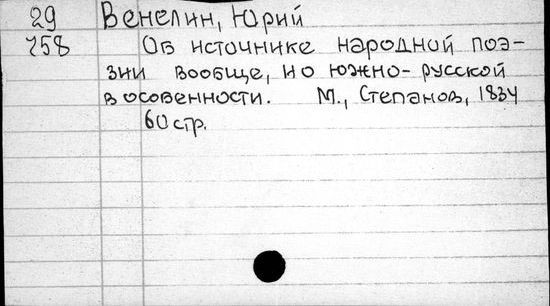 29 Венелин, Юрий
258 Об источнике народной поэ-
зии вообще, и о южно-русской
в особенности. М., Степанов, 1834
60 стр.